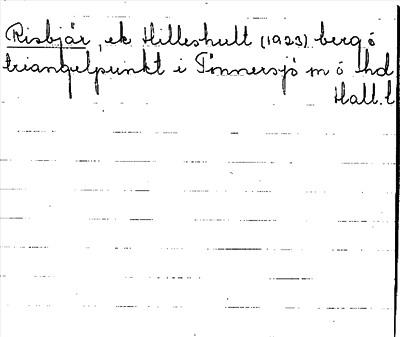 Risbjär, ek Hilleshult (1923) berg ó
triangelpunkt i Tönnersjö sn ó hd
Hall. l